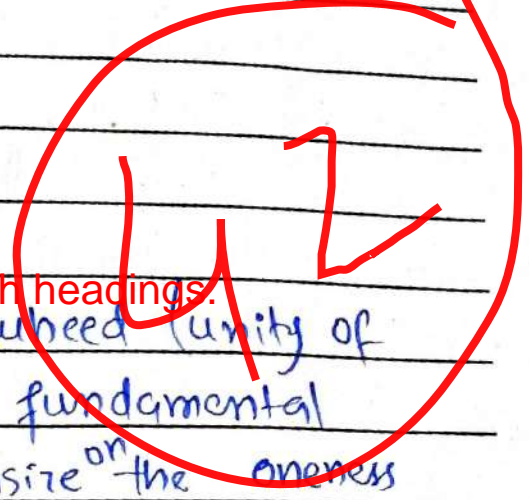 42
h headings.
uheed (unity of
fundamental
size on the oneness